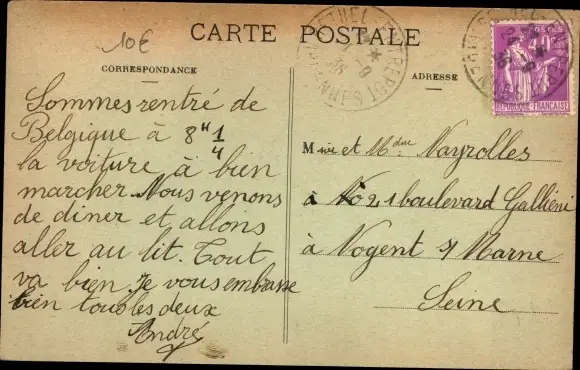 10€
CARTE POSTALE
CORRESPONDANCE
ADRESSE
Sommes rentré de
Belgique à 8 H 1/4
la voiture à bien
marcher. Nous venons
de diner et allons
aller au lit. Tout
va bien. Je vous embrasse
bien tous les deux
André
M et Mdme Nayrolles
à No 21 boulevard Galliéni
à Nogent s/ Marne
Seine
RETHEL-ENTREPOT
ARDENNES
40
REPUBLIQUE FRANÇAISE